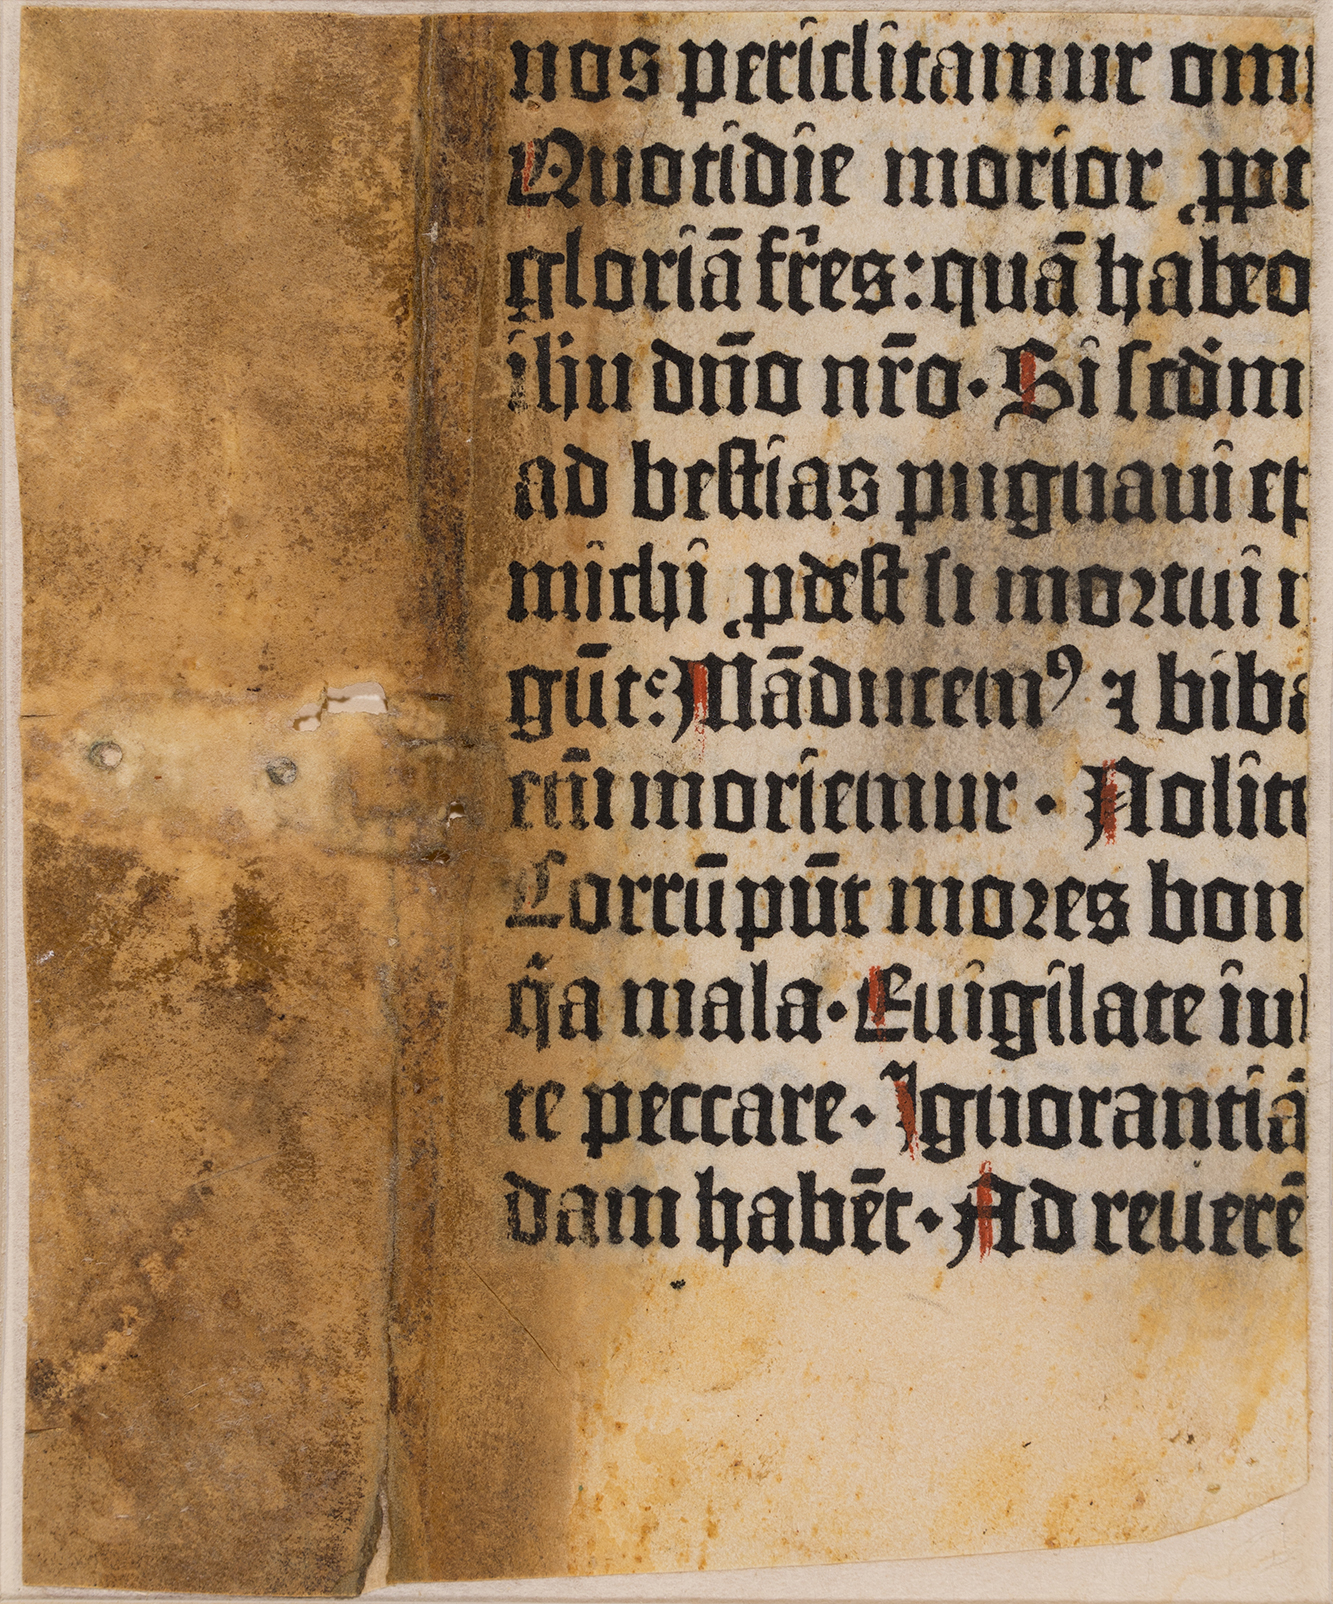 nos periclitamur om
Quotidie morior ꝓpt
gloriā fr̄es: quā habeo
ihu dn̄o nr̄o. Si scd̄m
ad bestias pugnaui ep
michi ꝓdest si mortui r
gūt: Māducemꝰ ⁊ biba
em̄ moriemur. Nolite
Corrūpūt mores bon
q̄a mala. Euigilate iu
te peccare. Ignorantiā
dam habēt. Ad reuerē